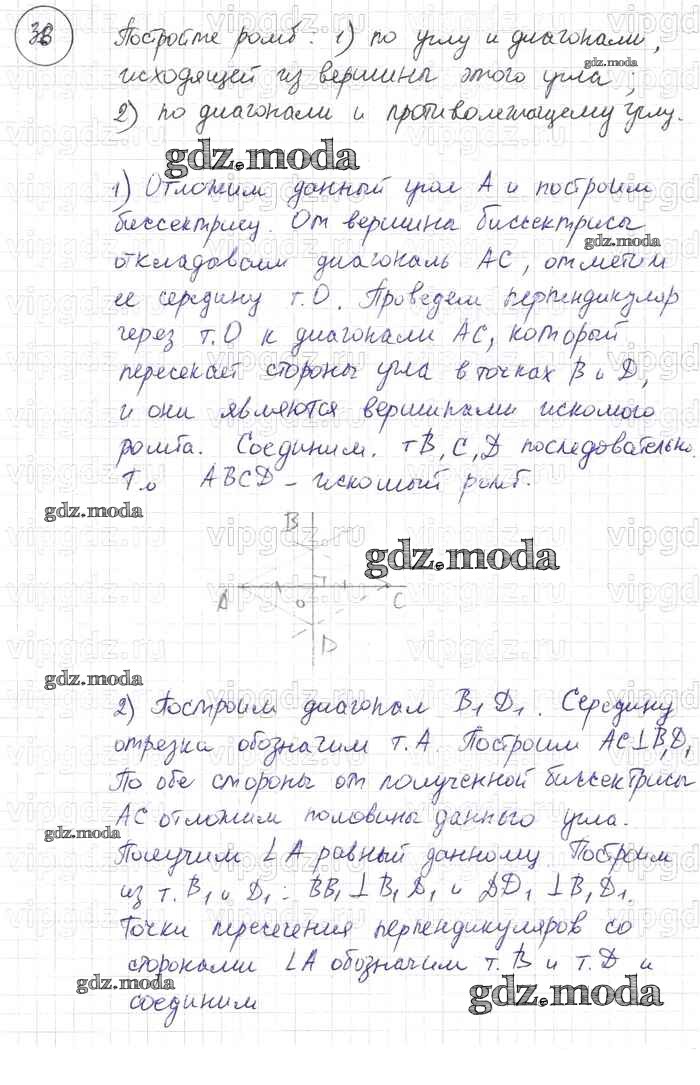 38
Постройте ромб: 1) по углу и диагонали,
исходящей из вершины этого угла;
2) по диагонали и противолежащему углу.
gdz.moda
1) Отложим данный угол А и построим
биссектрису. От вершина биссектрисы
gdz.moda
откладоваем диагональ АС, отметим
ее середину т.О. Проведем перпендикуляр
через т.О к диагонали АС, который
пересекает стороны угла в точках В и D,
и они являются вершинами искомого
ромба. Соединим. т В, С, D последовательно.
Т.о ABCD – искомый ромб.
gdz.moda
B
gdz.moda
A O C
D
gdz.moda
2) Построим диагонал B₁D₁. Середину
отрезка обозначим т.А. Построим АС⊥B₁D₁
По обе стороны от полученной биссектрисы
АС отложим половины данного угла.
gdz.moda
Получим ∠A равный данному. Построим
из т. B₁ и D₁: BB₁ ⊥ B₁D₁ и DD₁ ⊥ B₁D₁.
Точки пересечения перпендикуляров со
сторонами ∠A обозначим т. В и т. D и
gdz.moda
соединим
gdz.moda